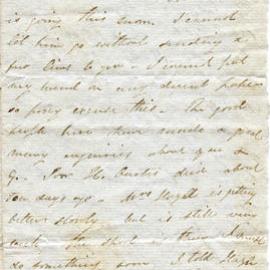 is going this noon. I cannot
let him go without sending a
few lines to you. I cannot find
my hand on any decent paper
so pray excuse this. The good
people here have made a great
many enquiries about you &
G. Poor Mr Curtis died about
ten days ago. Mrs is getting
better slowly but is still very
weak the
do something soon I told